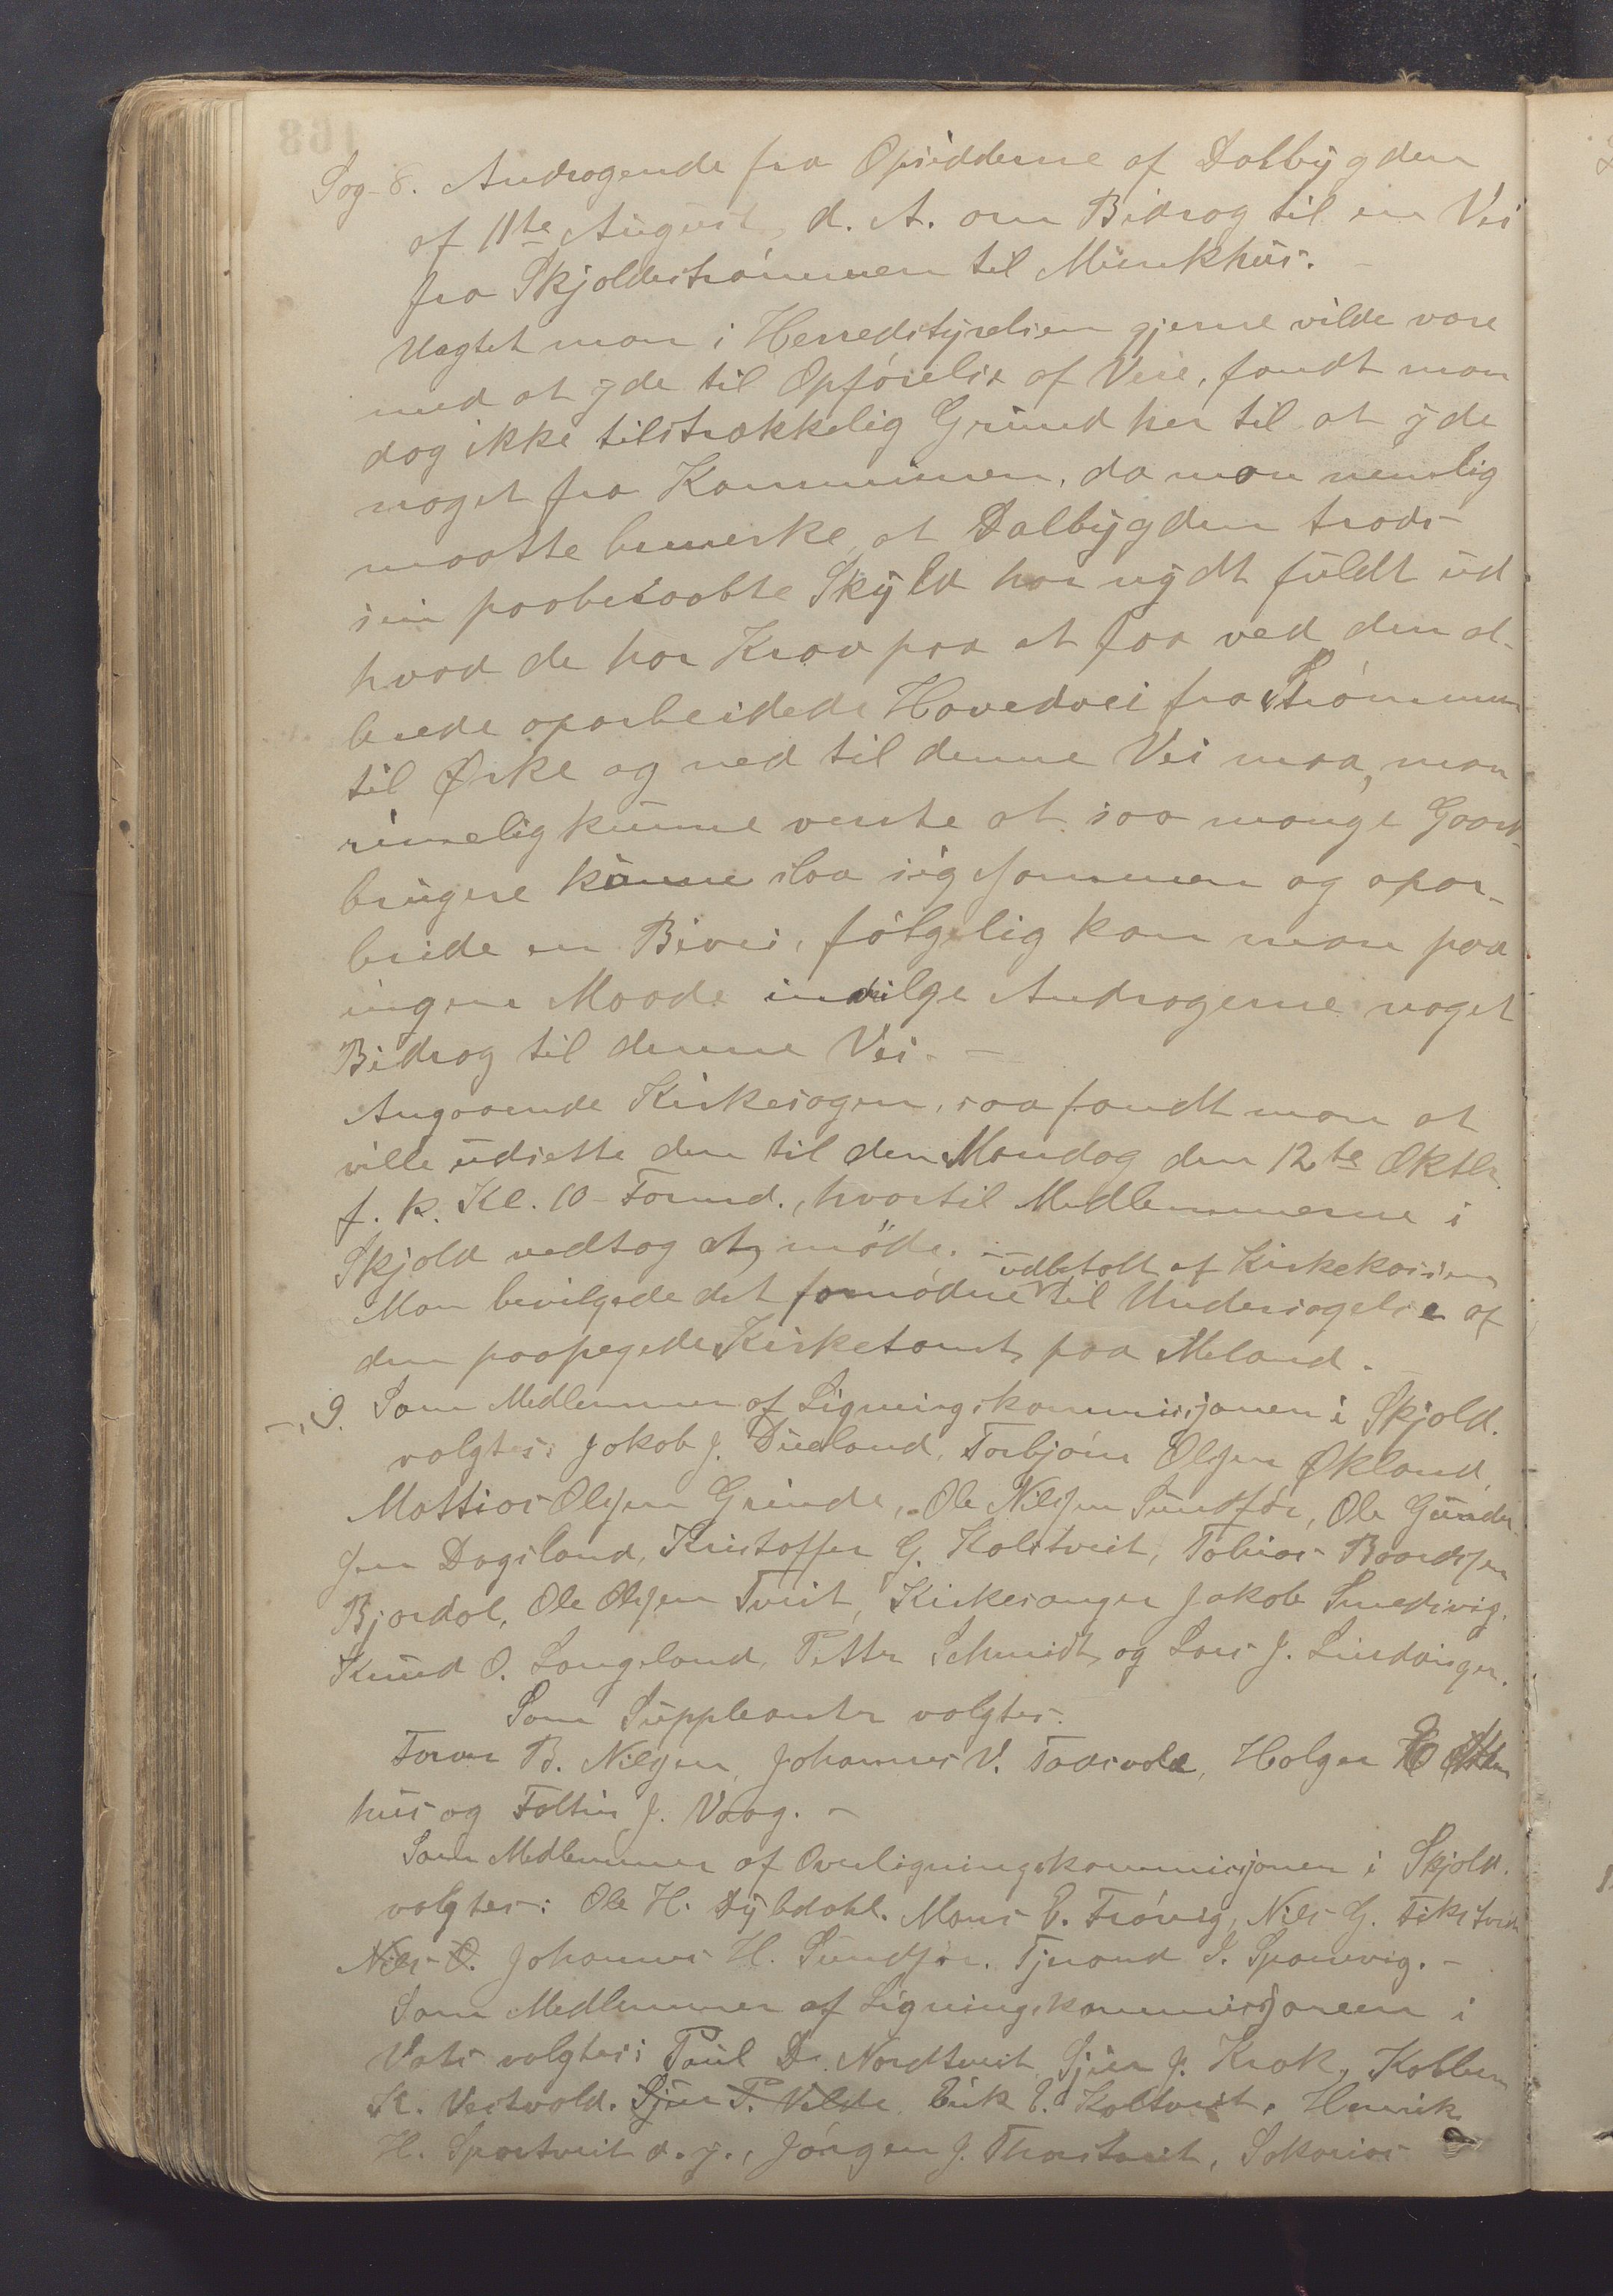 Sag 8. Andragende fra Opsidderne af Dalbygden
af 11te August d. A. om Bidrag til en Vei
fra Skjoldestrømmen til Munkhus.
Uagtet man i Herredstyrelsen gjerne vilde være
med at yde til Opførelse af Veie, fandt man
dog ikke tilstrækkelig Grund her til at yde
noget fra Kommunen, da man nemlig
maatte bemerke, at Dalbygden trods
sin paaberaabte Skyld har nydt fuldt ud
hvad de har Krav paa at faa ved den al-
lerede oparbeidede Hovedvei fra Strømmen
til Ørke og ned til denne Vei maa man
rimelig kunne vente at saa mange Gaard-
brugere kunne slaa sig sammen og opar-
beide en Bivei, følgelig kan man paa
ingen Maade indvilge Andragerne noget
Bidrag til denne Vei. –
Angaaende Kirkesagen, saa fandt man at
ville udsette den til den Mandag den 12te Oktbr.
f. k. Kl. 10 Formd., hvortil Medlemmerne i
Skjold vedtog at møde. –
udbetalt af Kirkekassen
Man bevilgede det fornødne til Undersøgelse af
den paapegede Kirketomt paa Meland. –
-"- 9. Som Medlemmer af Ligningskommissjonen i Skjold
valgtes: Jakob J. Dueland, Torbjørn Olsen Økland,
Mattias Olsen Grinde, Ole Nilsen Sundfør, Ole Gunder-
sen Dagsland, Kristoffer G. Kalstveit, Tobias Baardsen
Bjordal, Ole Olsen Tveit, Kirkesanger Jakob Smedsvig,
Knud O. Langeland, Petter Schmidt og Lars J. Lindanger.
Som Suppleanter valgtes:
B. Nilsen, Johannes V. Tadsvold, Holger
hus og Foltin J. Vaag. –
Som Medlemmer af Overligningskommissjonen i Skjold
valgtes: Ole H. Dybdahl. Mons E. Frøvig, Nils G.
Nils O. Johannes H. Sundfør. Tjerand S. Sponevig. –
Som Medlemmer af Ligningskommissjonen i
Vats valgtes: Paul D. Nordtveit, Sjur J. Krak, Kolben
K. Vestvold. Sjur P. Velde, Erik E. Koltveit, Henrik
H. Spartveit d. y., Jørgen J. Tharstveit, Sakarias